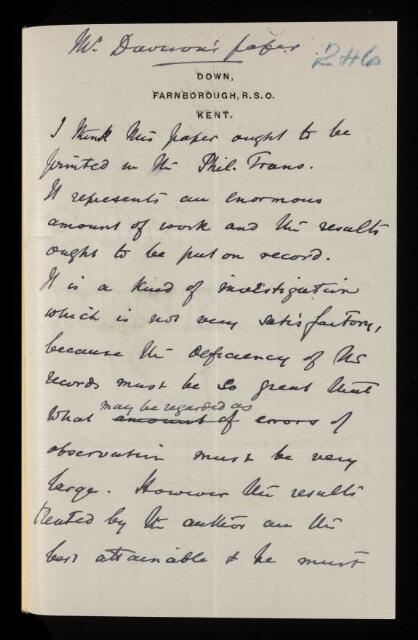 Mr. Davison's paper
246
DOWN,
FARNBOROUGH, R.S.O.
KENT.
I think this paper ought to be
printed in the Phil. Trans.
It represents an enormous
amount of work and the results
ought to be put on record.
It is a kind of investigation
which is not very satisfactory,
because the deficiency of the
records must be so great that
may be regarded as
what amount of errors of
observation must be very
large. However the results
treated by the author are the
best attainable & he must